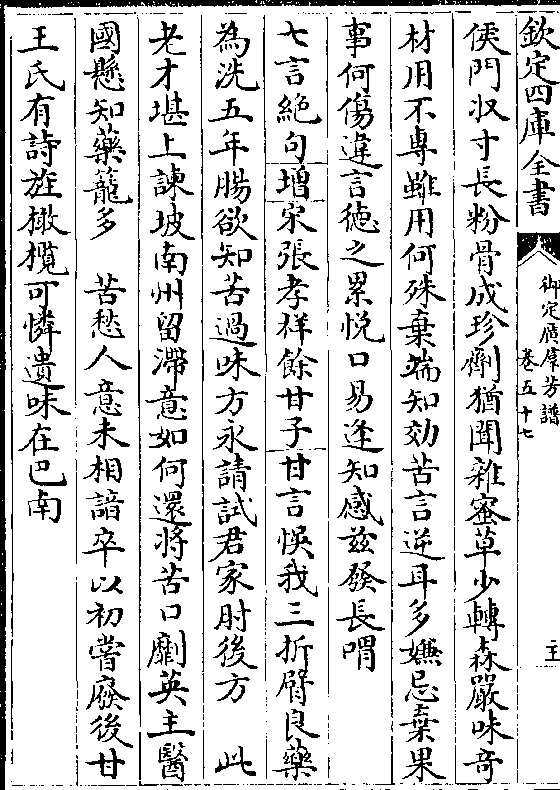 欽定四庫全書
御定廣羣芳譜
卷五十七
主
侯門収寸長粉骨成珍劑猶聞雜蜜草少轉森嚴味竒
材用不専雖用何殊棄端知効苦言逆耳多嫌忌棄果
事何傷違言徳之累悦口易逢知感兹發長喟
七言絶句增宋張孝祥餘甘子甘言悞我三折臂良藥
為洗五年腸欲知苦過味方永請試君家肘後方 此
老才堪上諫坡南州留滯意如何還將苦口劘英主醫
國懸知藥籠多 苦愁人意未相諳卒以初嘗廢後甘
王氏有詩旌橄欖可憐遺味在巴南